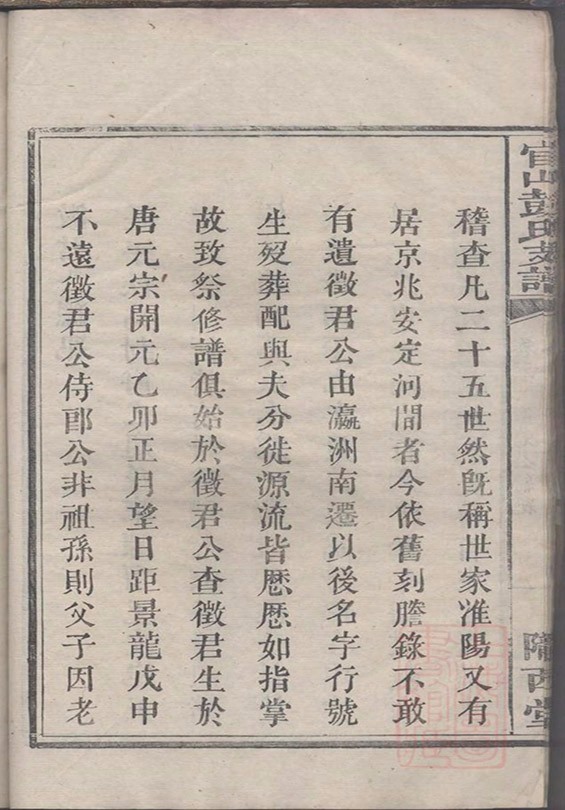 官山彭氏支譜
隴西堂
稽查凡二十五世然旣稱世家淮陽又有
居京兆安定河間者今依舊刻謄錄不敢
有遺徵君公由瀛洲南遷以後名字行號
生歿葬配與夫分徙源流皆歷歷如指掌
故致祭修譜俱始於徵君公查徵君生於
唐元宗開元乙卯正月望日距景龍戊申
不遠徵君公侍郎公非祖孫則父子因老